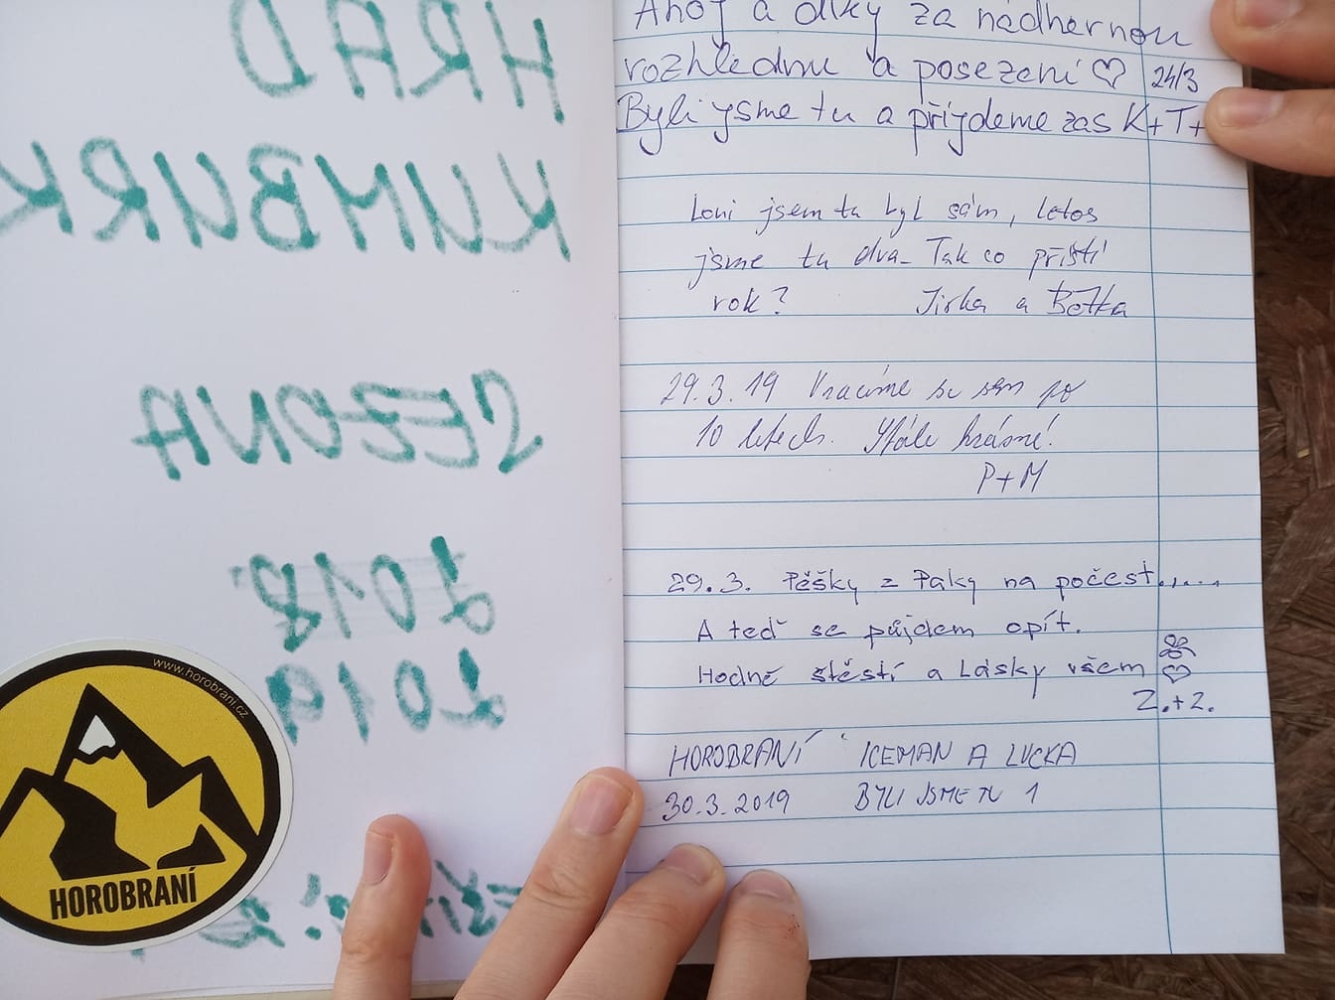 HRAD
KUMBURK
SEZONA
2018
2019
www.horobrani.cz
HOROBRANÍ
Ahoj a díky za nádhernou
rozhlednu a posezení ♡ 24/3
Byli jsme tu a přijdeme zas K+T+
Loni jsem tu byl sám, letos
jsme tu dva. Tak co příští
rok? Jirka a Bětka
29.3.19 Vracíme se sem po
10 letech. Stále krásné!
P+M
29.3. Pěšky z Paky na počest.....
A teď se půjdem opít.
Hodně štěstí a Lásky všem ♡
Z.+Z.
HOROBRANÍ ICEMAN A LUCKA
30.3.2019 BYLI JSME TU 1